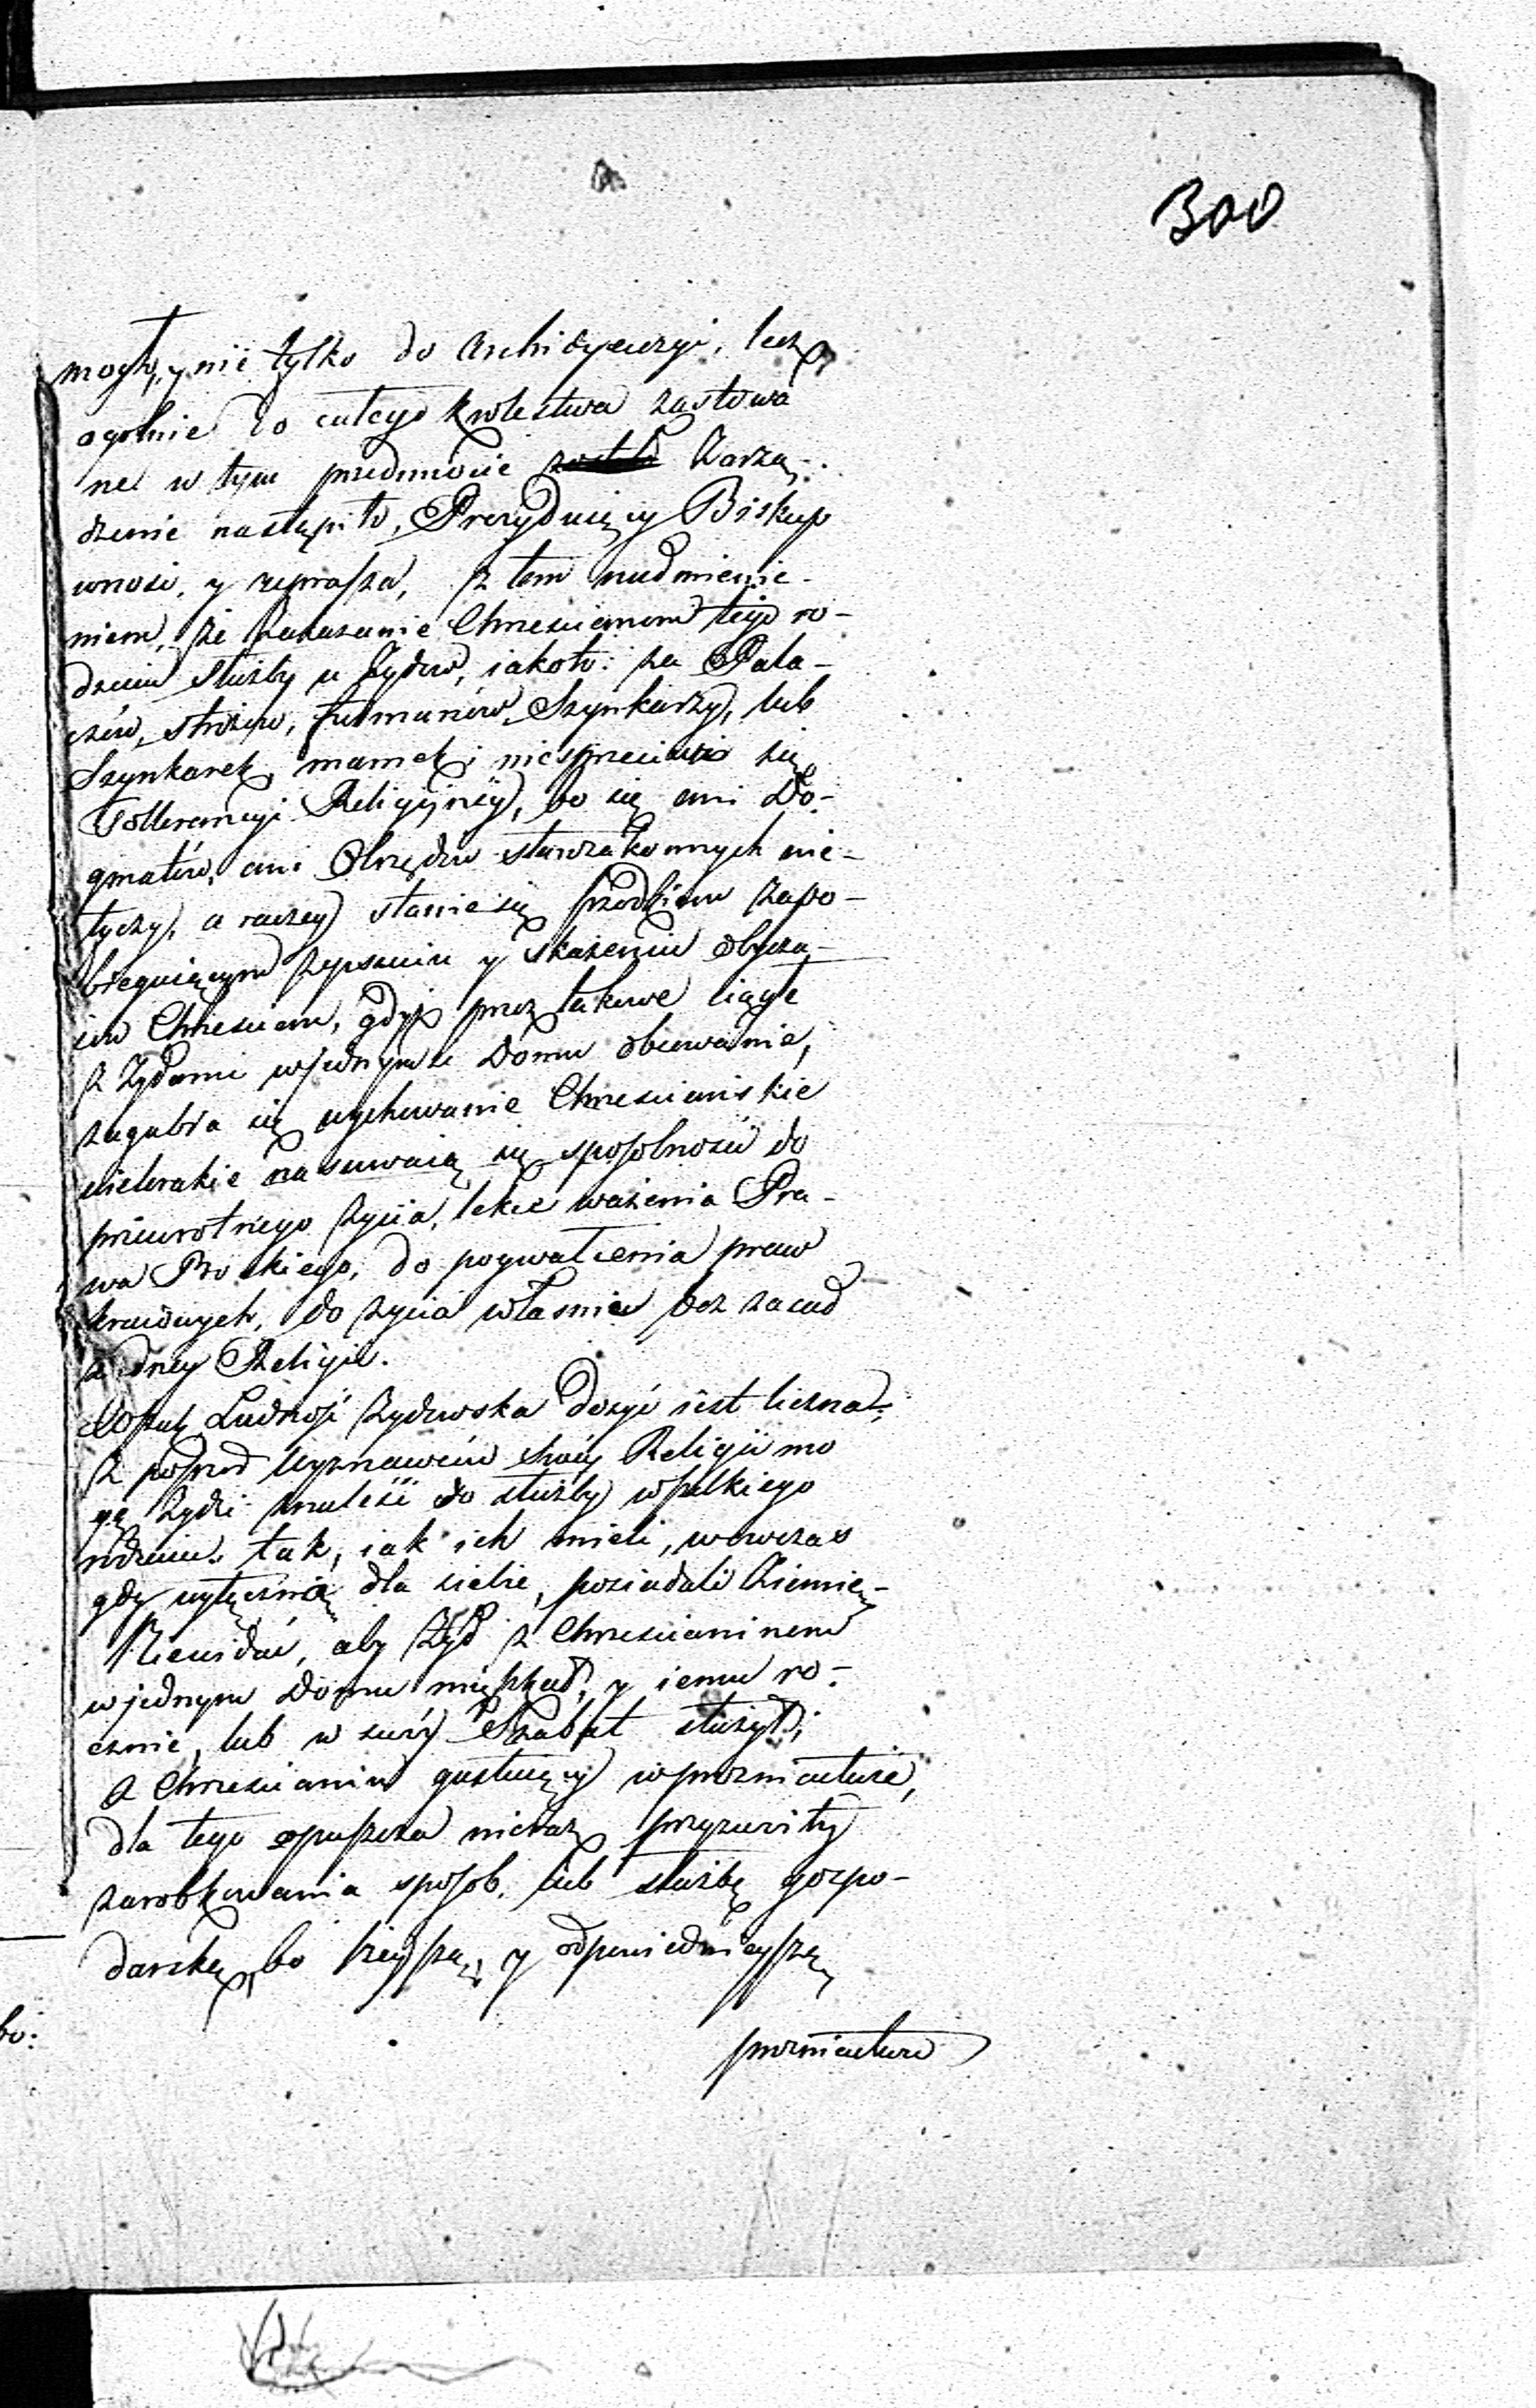 300
mogło, y nie tylko do Archidyecezyi, lecz
ogolnie do całego Krolestwa zastowa
ne w tym przedmiocie Zarzą-
dzenie nastąpiło, Prezyduiący Biskup
wnosi, y uprasza, z tem nadmienie-
niem, że zakazanie Chrzescianom tego ro-
dzaiu służby u Żydów, iakoto: za Pala-
czów, stróżow, furmanów, Szynkarzy, lub
Szynkarek, mamek; niesprzeciwia się
Tollerancyi Religijnéy, bo się ani Do-
gmatów, ani Obrzędów starozakonnych nie-
tyczy, a raczey stanie się srzodkiem zapo-
biegaiącym zepsuciu y skażeniu obycza-
iow Chrzescian, gdyż przez takowe ciągłe
z Żydami w jednymże Domu obcowanie,
zagubia się wychowanie Chrzesciańskie
wielorakie nasuwaią się sposobności do
przewrotnego życia, lekce ważenia Pra-
wa Boskiego, do pogwałcenia praw
kraiowych, do życia własnie bez zasad
żadney Religii.
Wszak Ludność Żydowska dosyć iest liczna,
z posrod Wyznawców swéy Religii mo
gą Żydzi znaleść do służby wszelkiego
rodzaiu tak, iak ich mieli, wowczas
gdy wyłącznie dla siebie, posiadali Ziemię,
Niewidać, aby Żyd z Chrzescianinem
w jednym Domu mięszkał, y iemu ro-
cznie, lub w swóy Szabat służył;
a Chrzescianin gustuiący w prozniactwie,
dla tego opuszcza nieraz przyzwoity
zarobkowania sposob, lub służbę gospo-
darską, bo lżeyszą, y odpowiednieyszą
prozniactwu
bo: